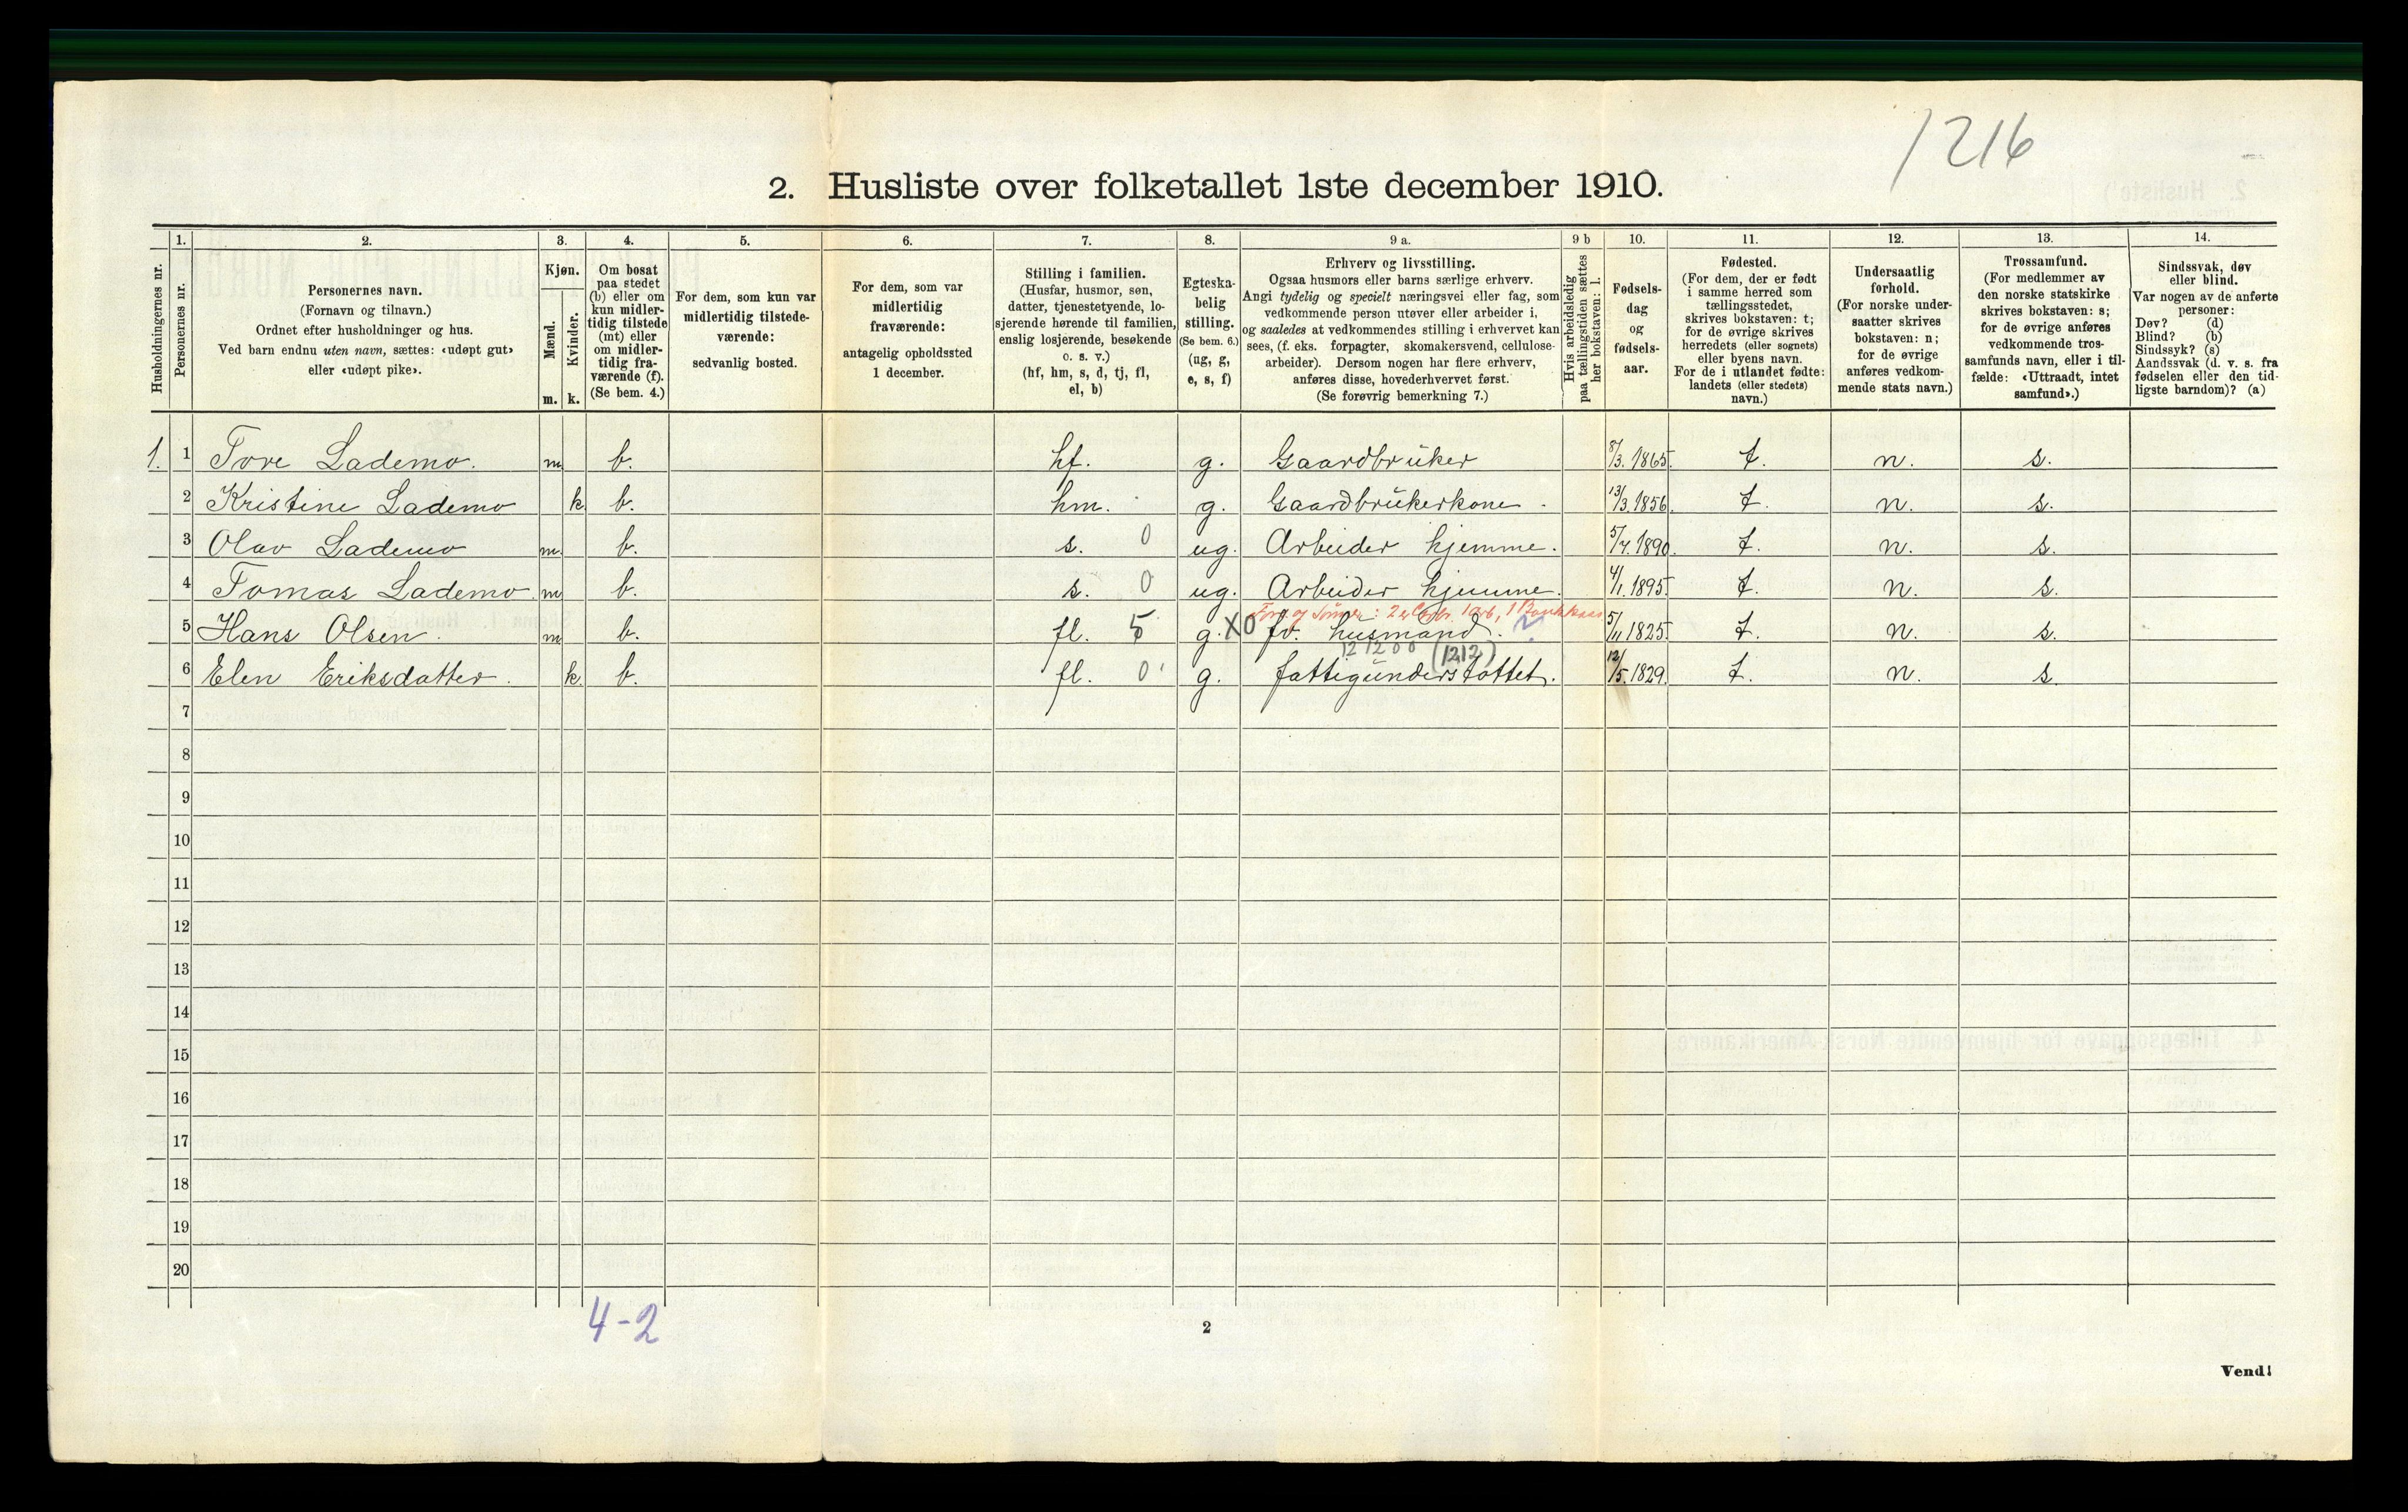 1216
2. Husliste over folketallet 1ste december 1910.
Husholdningernes nr.
1.
Personernes nr.
2.
Personernes navn.
(Fornavn og tilnavn.)
Ordnet efter husholdninger og hus.
Ved barn endnu uten navn, sættes: «udøpt gut»
eller «udøpt pike».
3.
Kjøn.
Mænd.
Kvinder.
m. k.
4.
Om bosat
paa stedet
(b) eller om
kun midler-
tidig tilstede
(mt) eller
om midler-
tidig fra-
værende (f).
(Se bem. 4.)
5.
For dem, som kun var
midlertidig tilstede-
værende:
sedvanlig bosted.
6.
For dem, som var
midlertidig
fraværende:
antagelig opholdssted
1 december.
7.
Stilling i familien.
(Husfar, husmor, søn,
datter, tjenestetyende, lo-
sjerende hørende til familien,
enslig losjerende, besøkende
o. s. v.)
(hf, hm, s, d, tj, fl,
el, b)
8.
Egteska-
belig
stilling.
(Se bem. 6.)
(ug, g,
e, s, f)
9 a.
Erhverv og livsstilling.
Ogsaa husmors eller barns særlige erhverv.
Angi tydelig og specielt næringsvei eller fag, som
vedkommende person utøver eller arbeider i,
og saaledes at vedkommendes stilling i erhvervet kan
sees, (f. eks. forpagter, skomakersvend, cellulose-
arbeider). Dersom nogen har flere erhverv,
anføres disse, hovederhvervet først.
(Se forøvrig bemerkning 7.)
9 b
Hvis arbeidsledig
paa tællingstiden sættes
her bokstaven: l.
10.
Fødsels-
dag
og
fødsels-
aar.
11.
Fødested.
(For dem, der er født
i samme herred som
tællingsstedet,
skrives bokstaven: t;
for de øvrige skrives
herredets (eller sognets)
eller byens navn.
For de i utlandet fødte:
landets (eller stedets)
navn.)
12.
Undersaatlig
forhold.
(For norske under-
saatter skrives
bokstaven: n;
for de øvrige
anføres vedkom-
mende stats navn.)
13.
Trossamfund.
(For medlemmer av
den norske statskirke
skrives bokstaven: s;
for de øvrige anføres
vedkommende tros-
samfunds navn, eller i til-
fælde: «Uttraadt, intet
samfund».)
14.
Sindssvak, døv
eller blind.
Var nogen av de anførte
personer:
Døv? (d)
Blind? (b)
Sindssyk? (s)
Aandssvak (d. v. s. fra
fødselen eller den tid-
ligste barndom)? (a)
1. 1 Tore Lademo. m b. hf. g. Gaardbruker 8/3. 1865. t. n. s.
2 Kristine Lademo k b. hm. g. Gaardbrukerkone. 13/3. 1856. t. n. s.
3 Olav Lademo m. b. s. 0 ug. Arbeider hjemme. 5/7. 1890. t. n. s.
4 Tomas Lademo. m b. s. 0 ug. Arbeider hjemme. 4/1. 1895. t. n. s.
5 Hans Olsen. m b. fl. 5 g. X0 fv. husmand. 5/11 1825. t. n. s.
121200 (1212)
6 Elen Eriksdatter. k. b. fl. 0 g. fattigunderstøttet. 12/5. 1829. t. n. s.
7
8
9
10
11
12
13
14
15
16
17
18
19
20
4-2
2
Vend!